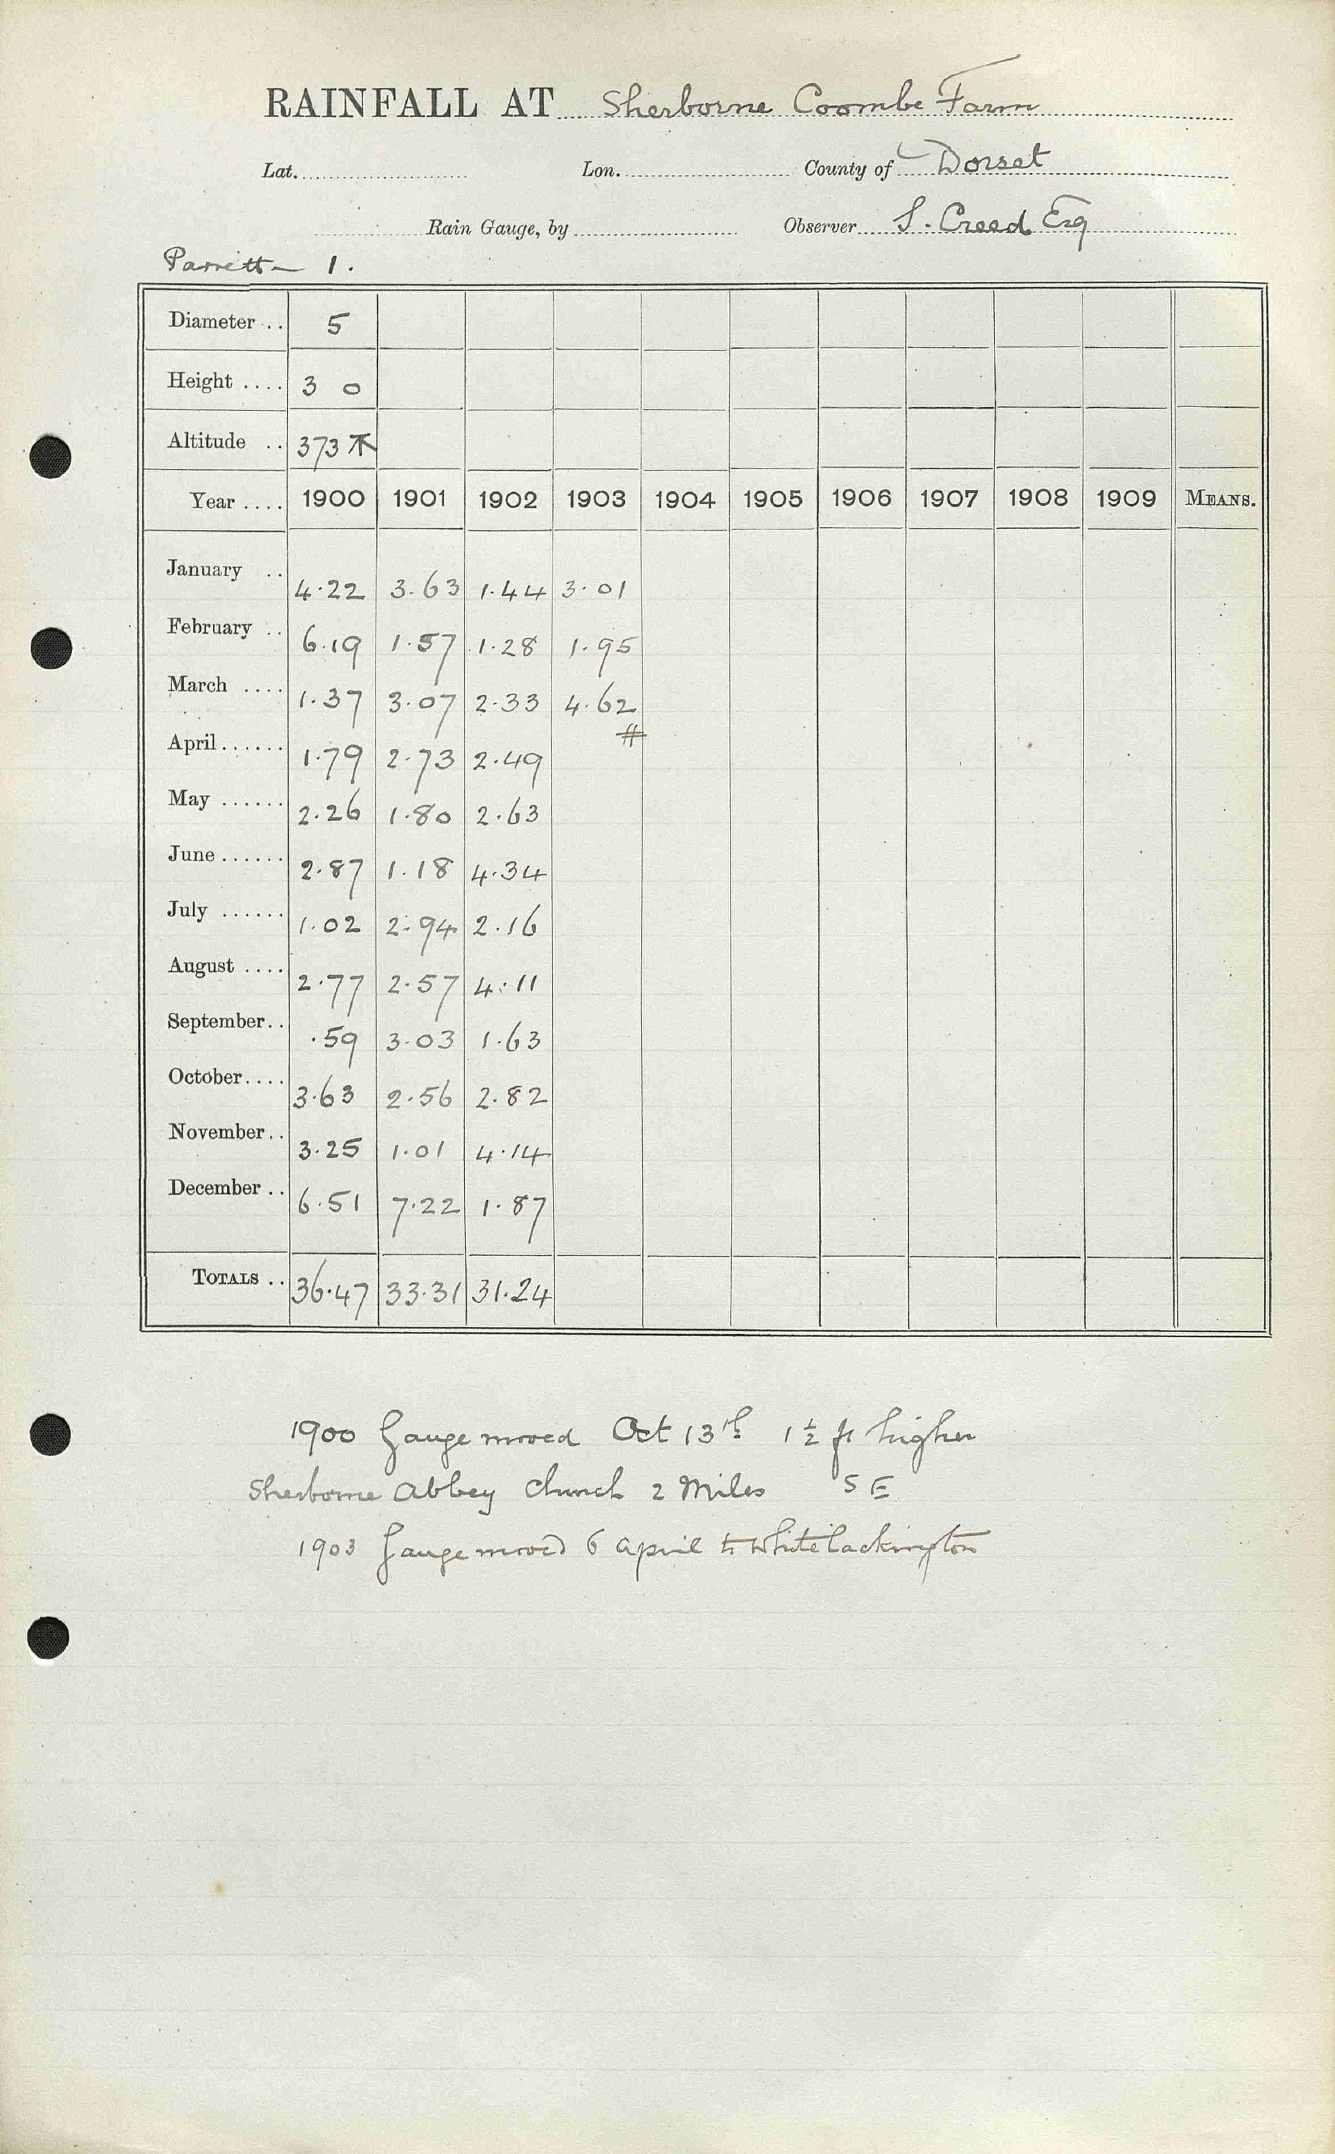 RAINFALL AT Sherborne Coombe Farm
Lat. Lon. County of Dorset
Rain Gauge, by Observer S. Creed Esq
Parrett – 1.
Diameter .. 5
Height .... 3 0
Altitude .. 373
Year .... 1900 1901 1902 1903 1904 1905 1906 1907 1908 1909 MEANS.
January .. 4.22 3.63 1.44 3.01
February .. 6.19 1.57 1.28 1.95
March .... 1.37 3.07 2.33 4.62
#
April...... 1.79 2.73 2.49
May ...... 2.26 1.80 2.63
June ...... 2.87 1.18 4.34
July ...... 1.02 2.94 2.16
August .... 2.77 2.57 4.11
September.. .59 3.03 1.63
October.... 3.63 2.56 2.82
November.. 3.25 1.01 4.14
December .. 6.51 7.22 1.87
TOTALS .. 36.47 33.31 31.24
1900 Gauge moved Oct 13th 1½ ft higher
Sherborne Abbey Church 2 Miles S E
1903 Gauge moved 6 April to Whitelackington